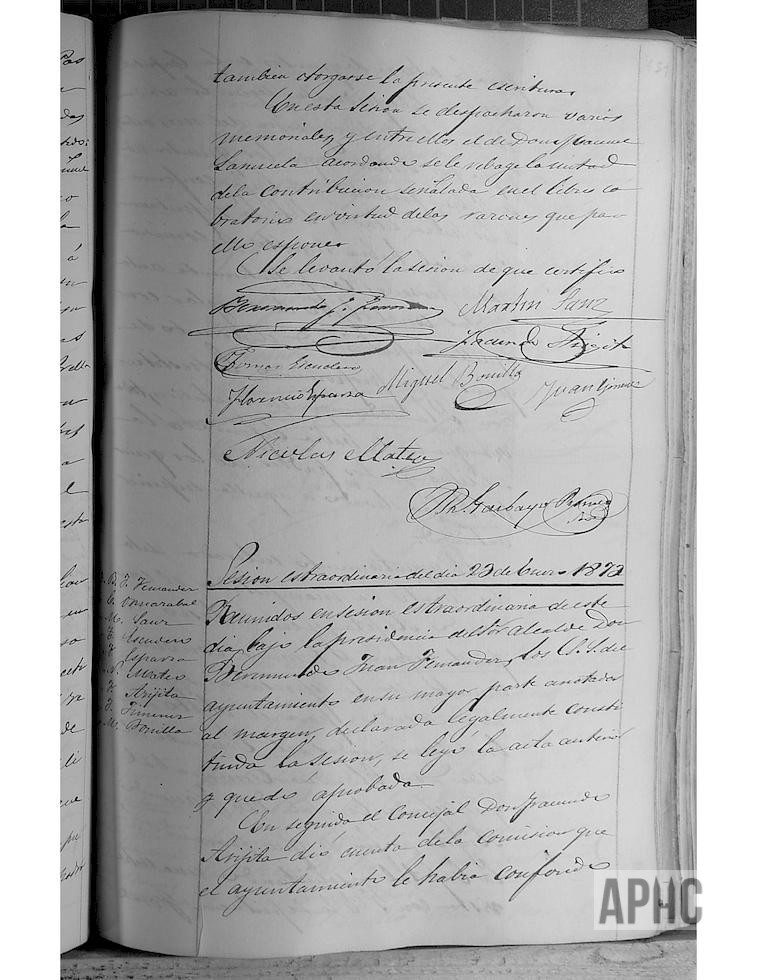 tambien otorgarse la presente escritura.
En esta Sesion se despacharon varios
memoriales, y entre ellos el de Don Manuel
Lamuela acordando se le rebage la mitad
de la contribucion señalada en el libro co
bratorio en virtud de las razones que para
ello espone.
Se levantó la sesion de que certifico
Bermundo J. Fernandez
Martin Sanz
Facundo Arijita
Tomas Escudero
Florencio Esparza
Miguel Bonilla
Juan Gimenez
Nicolas Mateo
Garbayo
Sesion estraordinaria del dia 23 de Enero 1873
B. J. Fernandez
M. Sanz
Escudero
F. Esparza
N. Mateo
F. Arijita
J. Jimenez
M. Bonilla
Reunidos en sesion estraordinaria de este
dia, bajo la presidencia del Sor Alcalde Don
Bermundo Juan Fernandez, los S. S. del
ayuntamiento en su mayor parte anotados
al margen, declarada legalmente consti
tuida la Sesion, se leyó la acta anterior
y quedó aprobada.
En seguida el Concejal Don Facundo
Arijita dio cuenta de la comision que
el ayuntamiento le habia conferido
APHC